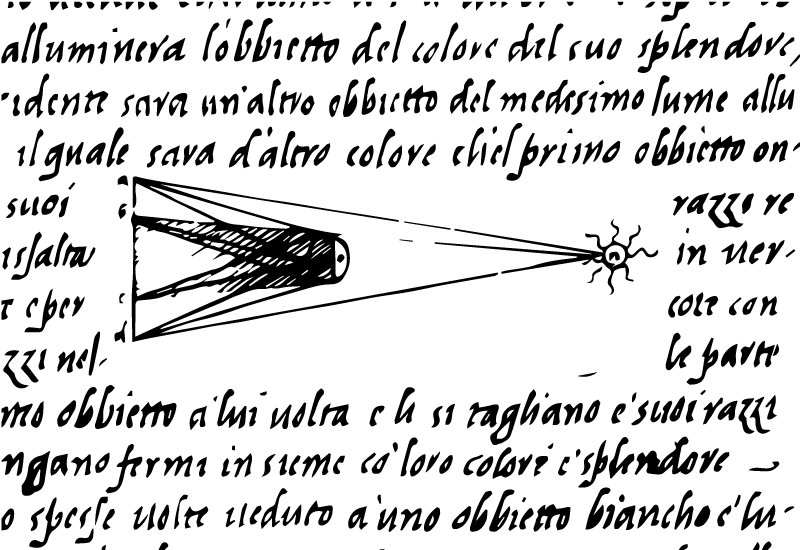 alluminera l'obbietto del colore del suo splendore,
idente sara un'altro obbietto del medesimo lume allu
il quale sara d'altro colore ch'el primo obbietto on-
suoi razzo re
risalta in ver-
t e per cote con
zzi nel- le parti
mo obbietto a lui volta e li si tagliano e' suoi razzi
ngano fermi insieme co' loro colori e' splendore
o spesse volte veduto a' uno obbietto biancho e' lu-